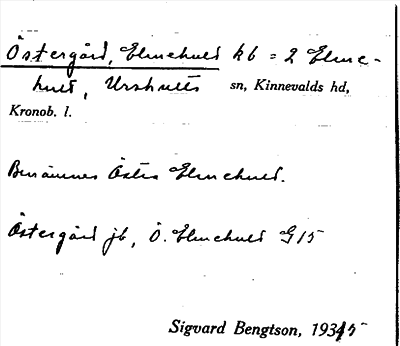 Östergård, Elmehult kb = 2 Elme-
hult, Urshults sn, Kinnevalds hd,
Kronob. l.
Benämnes Östra Elmehult.
Östergård jb, Ö. Elmehult G15
Sigvard Bengtson, 1935